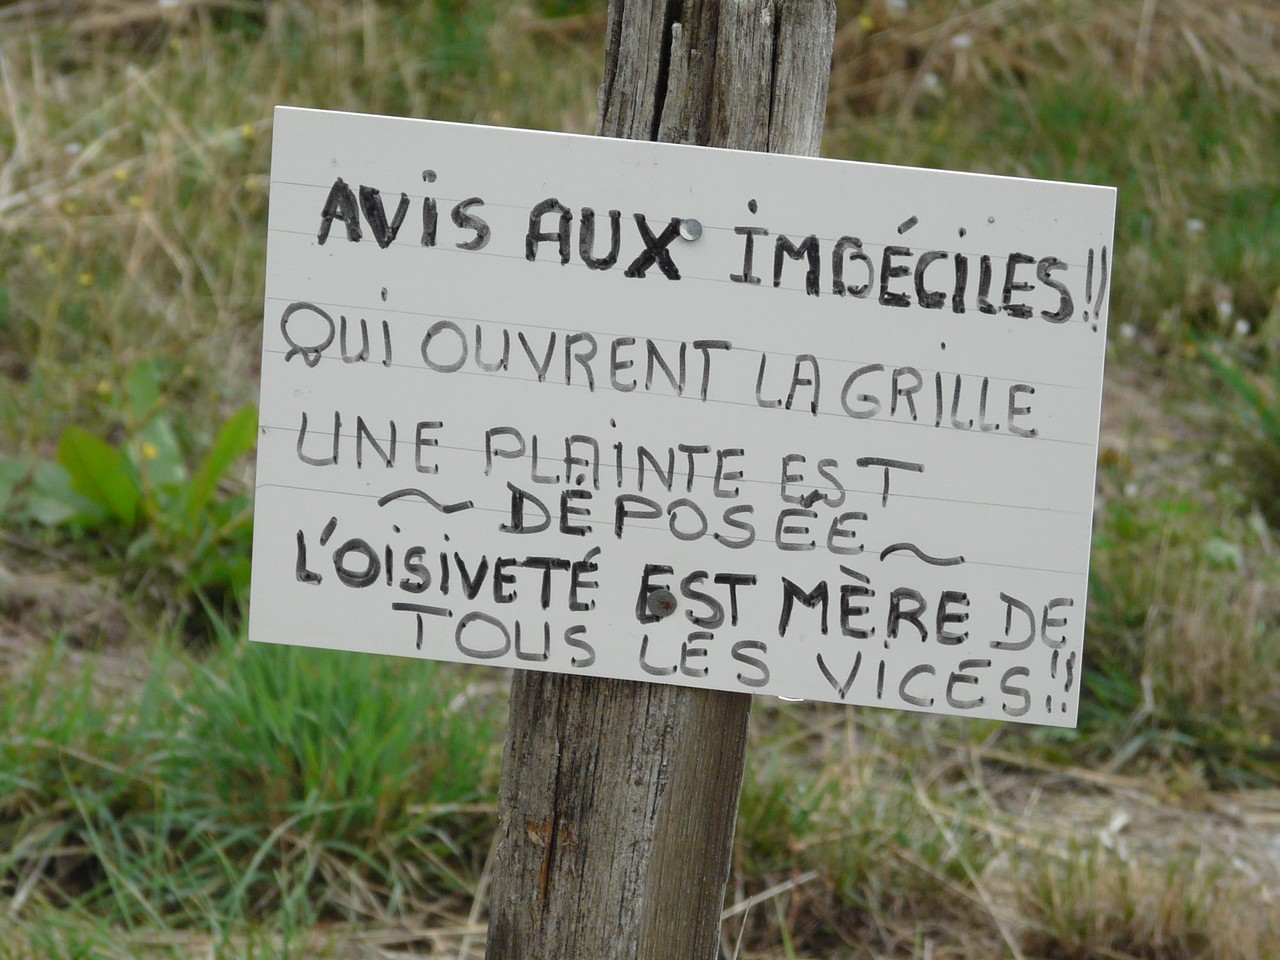 AVIS AUX IMBÉCILES!!
QUI OUVRENT LA GRILLE
UNE PLAINTE EST
~ DÉPOSÉE ~
L'OISIVETÉ EST MÈRE DE
TOUS LES VICES!!